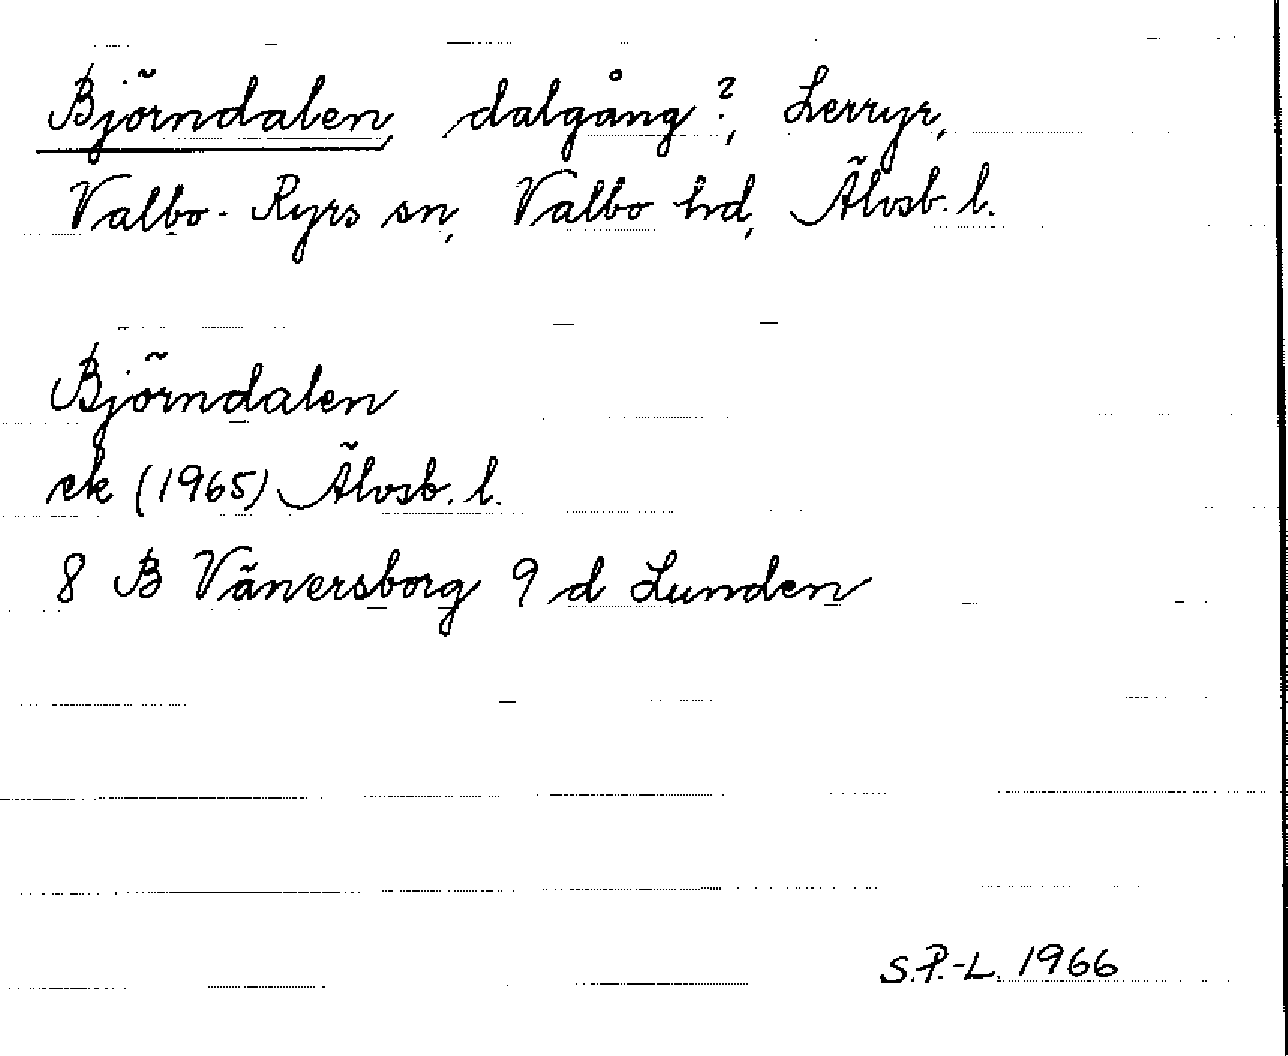 Björndalen, dalgång?, Lerryr,
Valbo-Ryrs sn, Valbo hd, Älvsb. l.
Björndalen
ek (1965) Älvsb. l.
8 B Vänersborg 9 d Lunden
S.P.-L. 1966